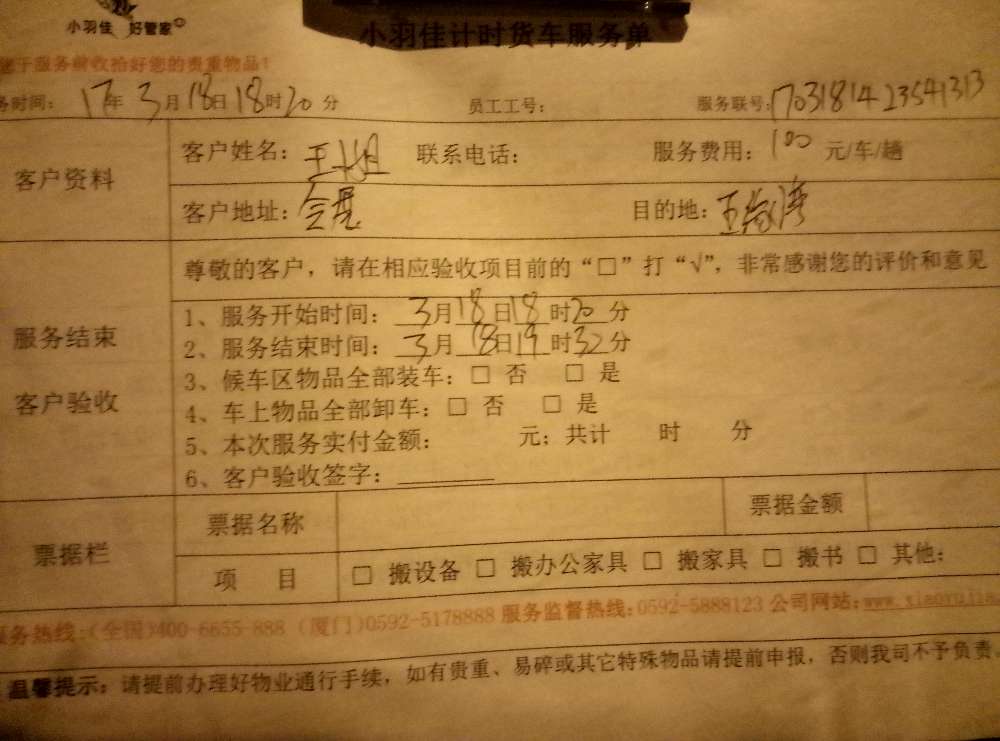 小羽佳 好管家
小羽佳计时货车服务单
于服务前收拾好您的贵重物品!
务时间: 17年3月18日18时20分 员工工号: 服务联号:
客户资料
客户姓名:王小姐 联系电话: 服务费用:100 元/车/趟
客户地址: 目的地:
尊敬的客户,请在相应验收项目前的“□”打“√”,非常感谢您的评价和意见
服务结束
客户验收
1、服务开始时间:3月18日18时20分
2、服务结束时间:3月18日19时32分
3、候车区物品全部装车:□ 否 □ 是
4、车上物品全部卸车:□ 否 □ 是
5、本次服务实付金额: 元;共计 时 分
6、客户验收签字:
票据栏
票据名称 票据金额
项 目 □ 搬设备 □ 搬办公家具 □ 搬家具 □ 搬书 □ 其他:
服务热线:(全国)400-6655-888 (厦门)0592-5178888 服务监督热线:0592-5888123 公司网站:www.xiaoyujia
温馨提示:请提前办理好物业通行手续,如有贵重、易碎或其它特殊物品请提前申报,否则我司不予负责。